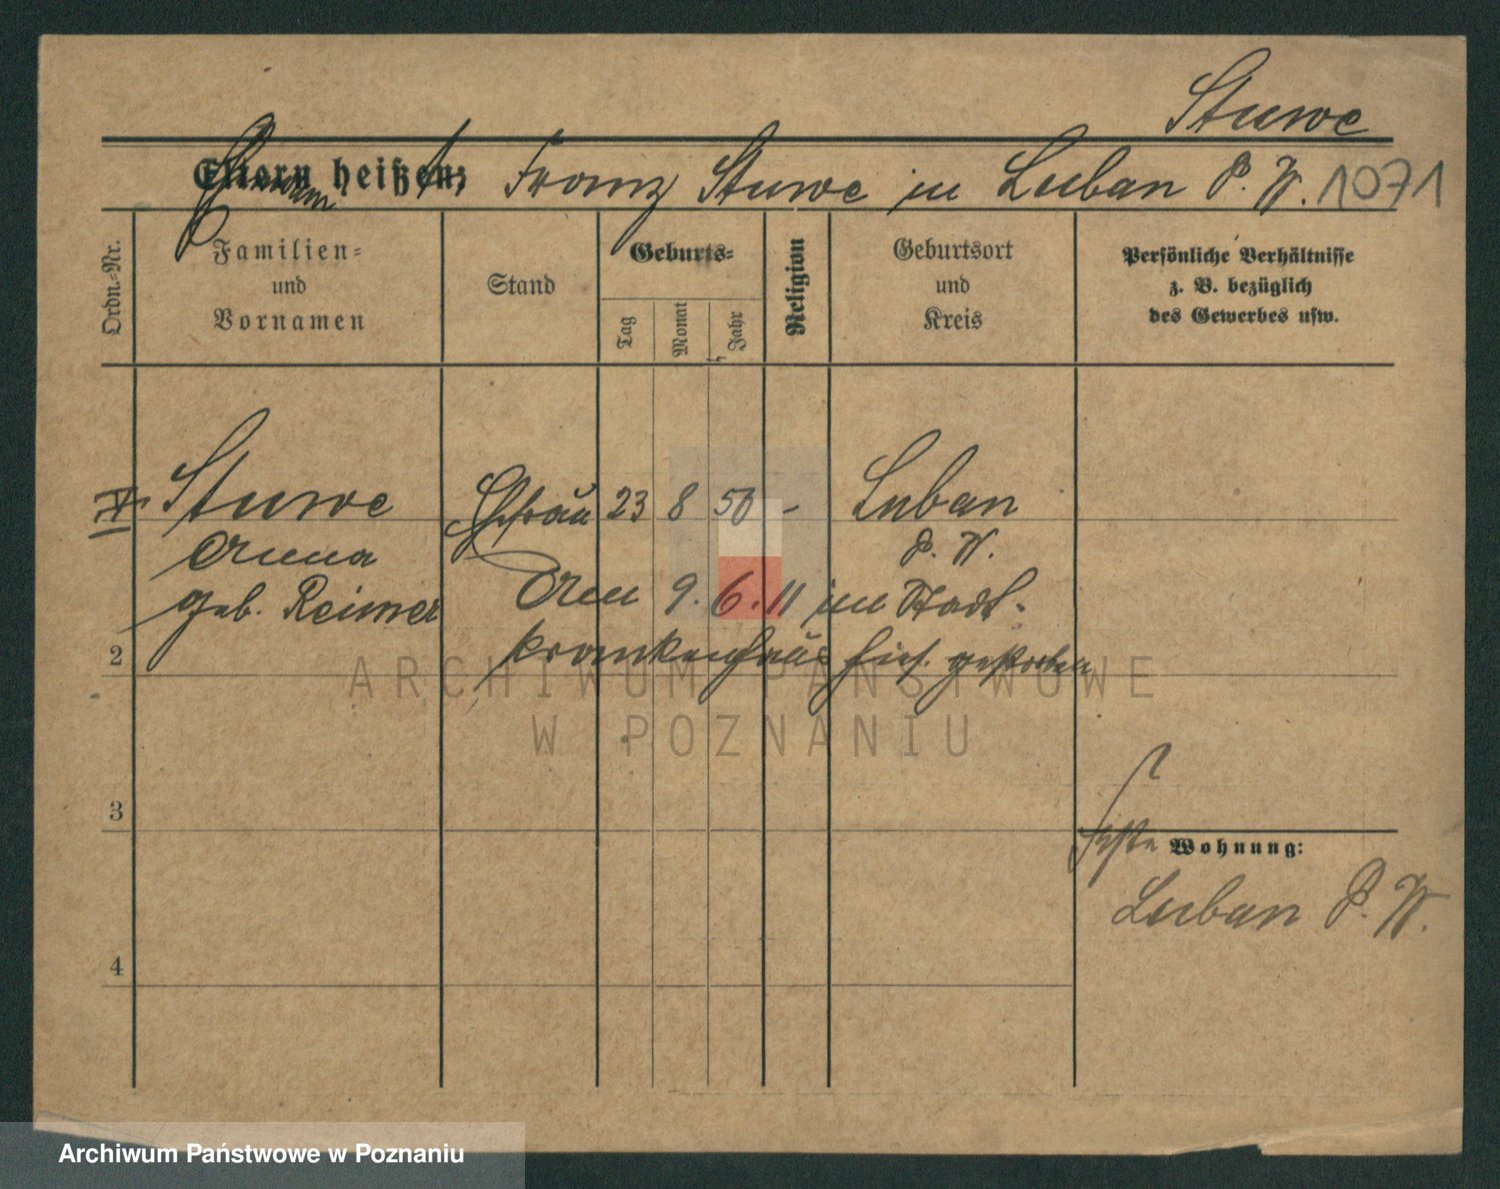 Stuwe
Eltern heißen: Franz Stuwe in Luban P. W. 1071
Ordn.-Nr.
Familien-
und
Vornamen
Stand
Geburts-
Tag
Monat
Jahr
Religion
Geburtsort
und
Kreis
Persönliche Verhältnisse
z. B. bezüglich
des Gewerbes usw.
Stuwe Ehefrau 23 8 50 - Luban
Anna P. W.
geb. Reimer Am 9. 6. 11 im Stadt-
2 krankenhaus hies. gestorben
3
Wohnung:
Luban P. W.
4
ARCHIWUM PAŃSTWOWE
W POZNANIU
Archiwum Państwowe w Poznaniu